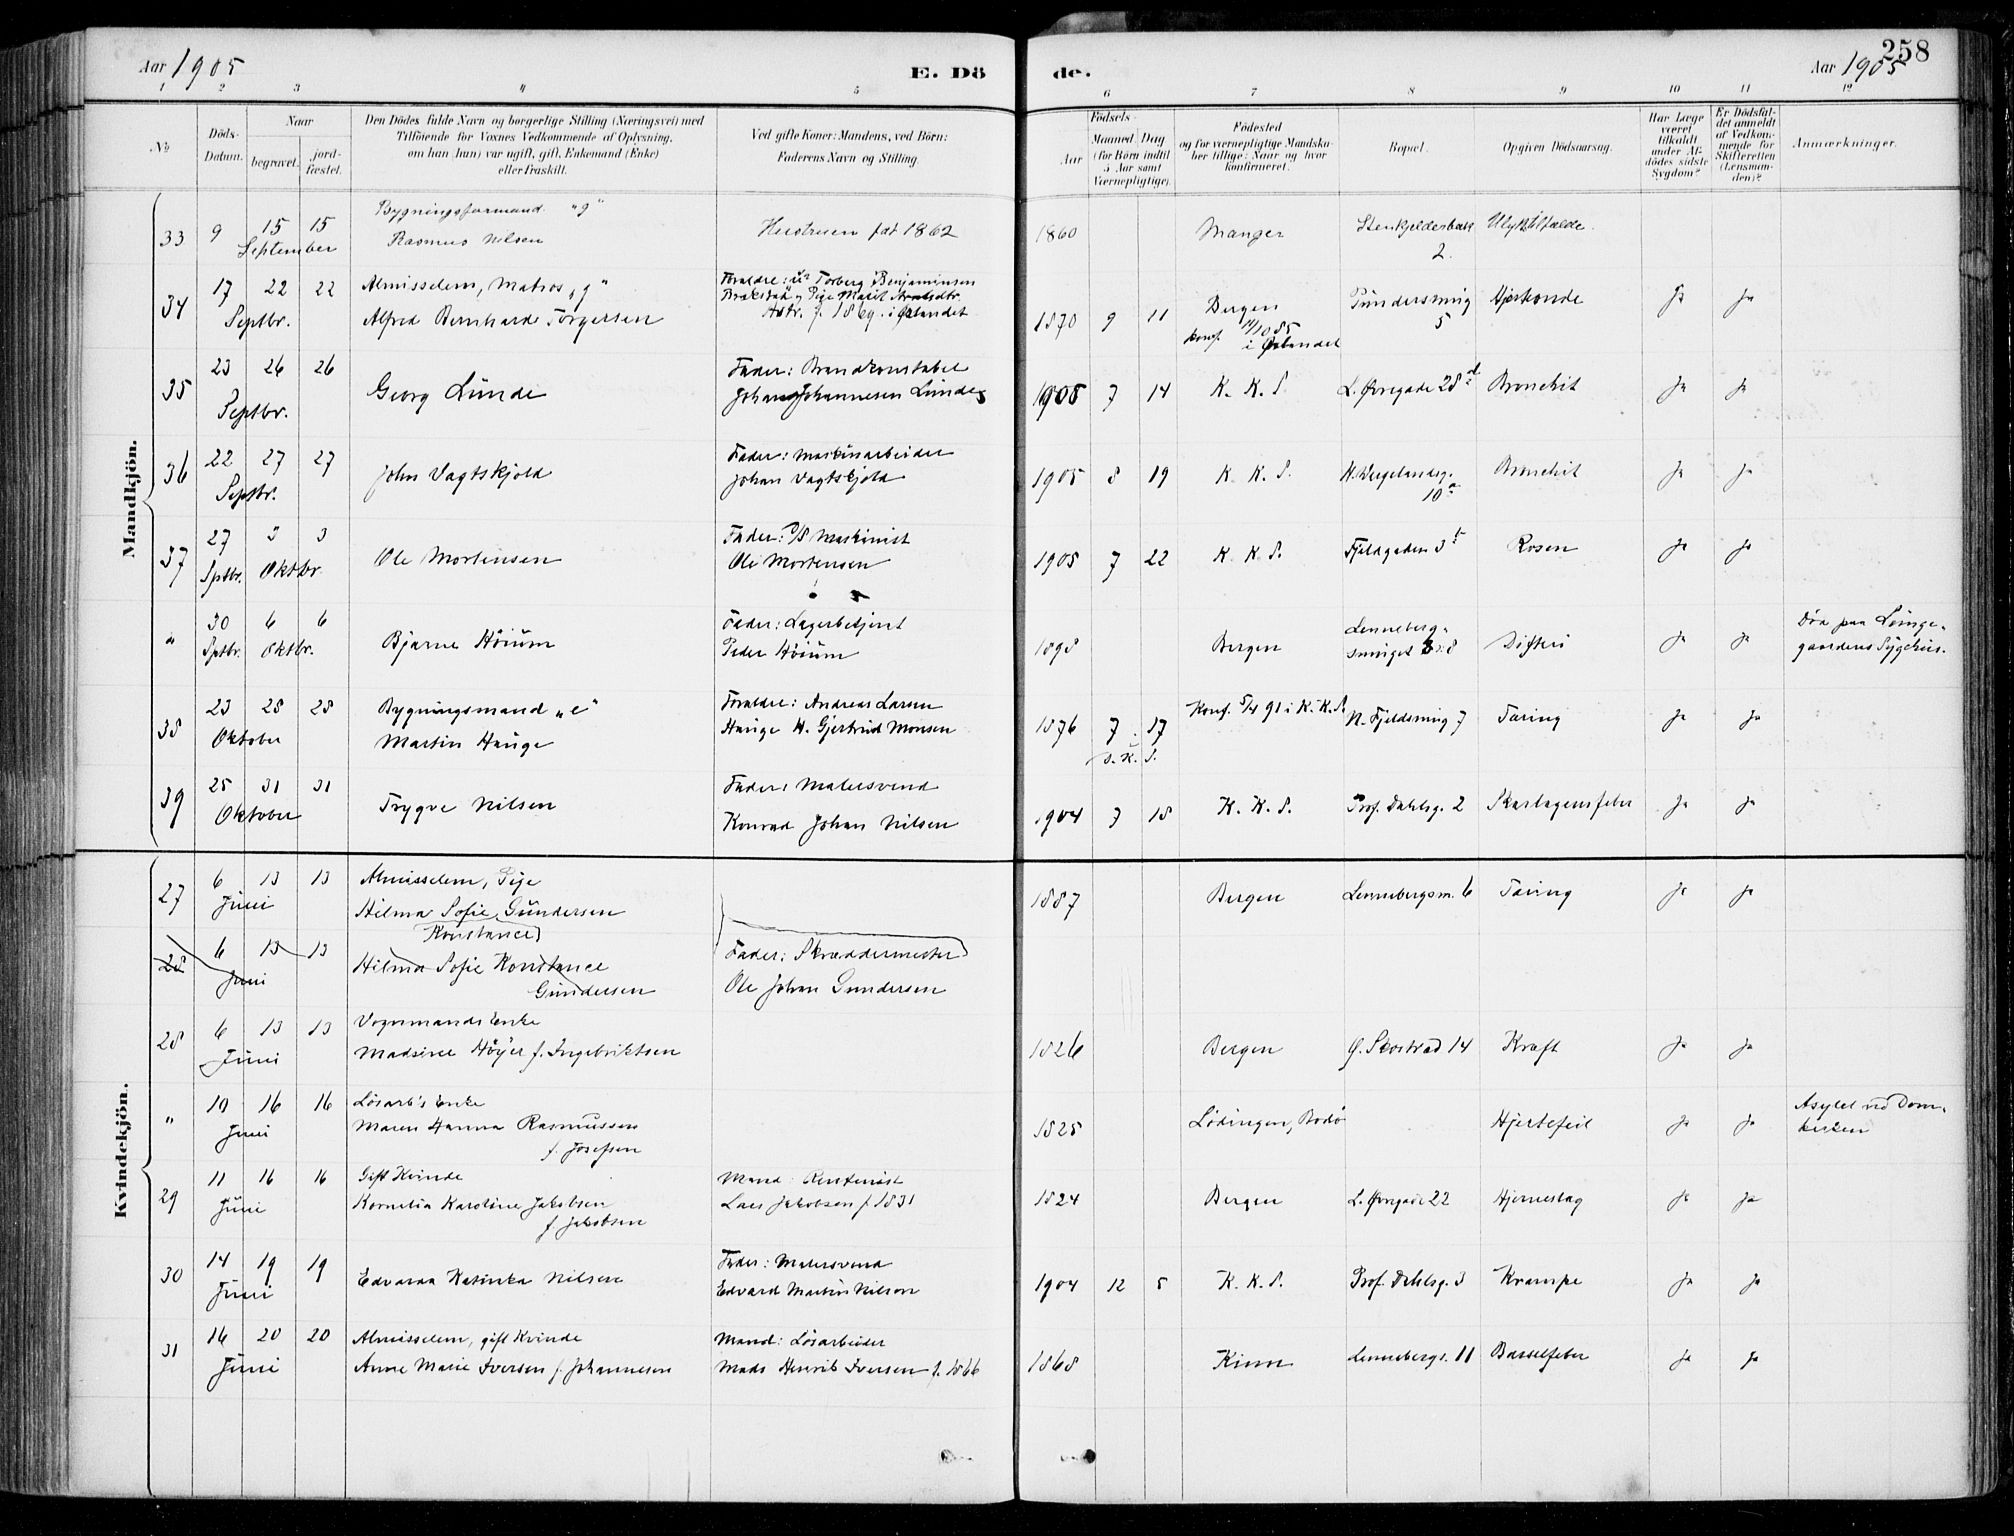 Aar 1905
E. Dö
de.
258
Aar 1905
1 2 3 4 5 6 7 8 9 10 11 12
No
Döds-Datum.
Naar
begravet.
jord-fæstet.
Den Dödes fulde Navn og borgerlige Stilling (Næringsvei) med
Tilföiende for Voxnes Vedkommende af Oplysning,
om han (hun) var ugift, gift, Enkemand (Enke)
eller fraskilt.
Ved gifte Koner: Mandens, ved Börn:
Faderens Navn og Stilling.
Födsels-
Aar
Maaned Dag
(for Börn indtil
5 Aar samt
Værnepligtige).
Födested
og for værnepligtige Mandska-
ber tillige: Naar og hvor
konfirmeret.
Bopæl.
Opgiven Dödsaarsag.
Har Læge
været
tilkaldt
under Af-
dödes sidste
Sygdom?
Er Dödsfal-
det anmeldt
af Vedkom-
mende for
Skifteretten
(Lensman-
den)?
Anmærkninger.
Mandkjön.
33 9 15 15 September
Bygningsformand "g"
Rasmus Nilsen
Hustruen født 1862
1860 Manger Stenkjelderbak 2. Ulykkestilfælde.
34 17 22 22 Septbr.
Almisselem, Matros "g"
Alfred Bernhard Torgersen
Forældre: Torberg Benjaminsen
1870 9 11 Bergen
konf. 11/10 85
Pundersmug 5 Hjerkonde Ja Ja
35 23 26 26 Septbr.
Georg Lunde
Fader: Brandkonstabel
Johan Johannesen Lunde
1905 7 14 K. K. S. L. Øvregade 28 Bronchit Ja Ja
36 22 27 27 Septbr.
John Vagtskjold
Fader: Maskinarbeider
Johan Vagtskjold
1905 8 19 K. K. S. H. Wergelandsg. 10a Bronchit Ja Ja
37 27 3 3 Sptbr. Oktbr
Ole Mortensen
Fader: D/S Maskinist
Ole Mortensen
1905 7 22 K. K. S. Fjeldgaden 3 Rosen Ja Ja
" 30 6 6 Sptbr. Oktbr.
Bjarne Höium
Fader: Lagerbetjent
Peder Höium
1898 Bergen Lenneberg-
smuget 8 Difteri Ja Ja
Död paa Lunge-
gaardens Sygehus.
38 23 28 28 Oktober
Bygningsmand "e"
Martin Hauge
Forældre: Andreas Larsen
Hauge H. Gjertrud Monsen
1876 7 17
D. K. S.
Konf. 5/4 91 i K. K. S. N. Fjeldsmug 7 Tæring Ja Ja
39 25 31 31 Oktober
Trygve Nilsen
Fader: Malersvend
Konrad Johan Nilsen
1904 7 18 K. K. S. Prof. Dahlsg. 2 Skarlagensfeber Ja Ja
Kvindekjön.
27 6 13 13 Juni
Almisselem, Pige
Hilma Sofie Gundersen
(Konstance)
1887 Bergen Lennebergsm. 6 Tæring Ja Ja
28 6 13 13 Juni
Hilma Sofie Konstance
Gundersen
Fader: Skræddermester
Ole Johan Gundersen
28 6 13 13 Juni
Vognmands Enke
Madsine Höyer f. Ingebriktsen
1826 Bergen Ø. Skostræd 14 Kræft Ja Ja
" 10 16 16 Juni
Lösarb's Enke
Maren Hanna Rasmussen
f. Josefsen
1825 Lödingen, Bodö Hjertefeil Ja Ja
Asylet ved Dom-
kirken
29 11 16 16 Juni
Gift Kvinde
Kornelia Karoline Jakobsen
f. Jakobsen
Mand: Rentenist
Lars Jakobsen f. 1831
1824 Bergen L. Øvregade 22 Hjerneslag Ja Ja
30 14 19 19 Juni
Edvarda Katinka Nilsen
Fader: Malersvend
Edvard Martin Nilsen
1904 12 5 K. K. S. Prof. Dahlsg. 3 Krampe Ja Ja
31 16 20 20 Juni
Almisselem, gift Kvinde
Anne Marie Iversen f. Johannesen
Mand: Lösarbeider
Mads Henrik Iversen f. 1866
1868 Kinn Lennebergs. 11 Barselfeber Ja Ja